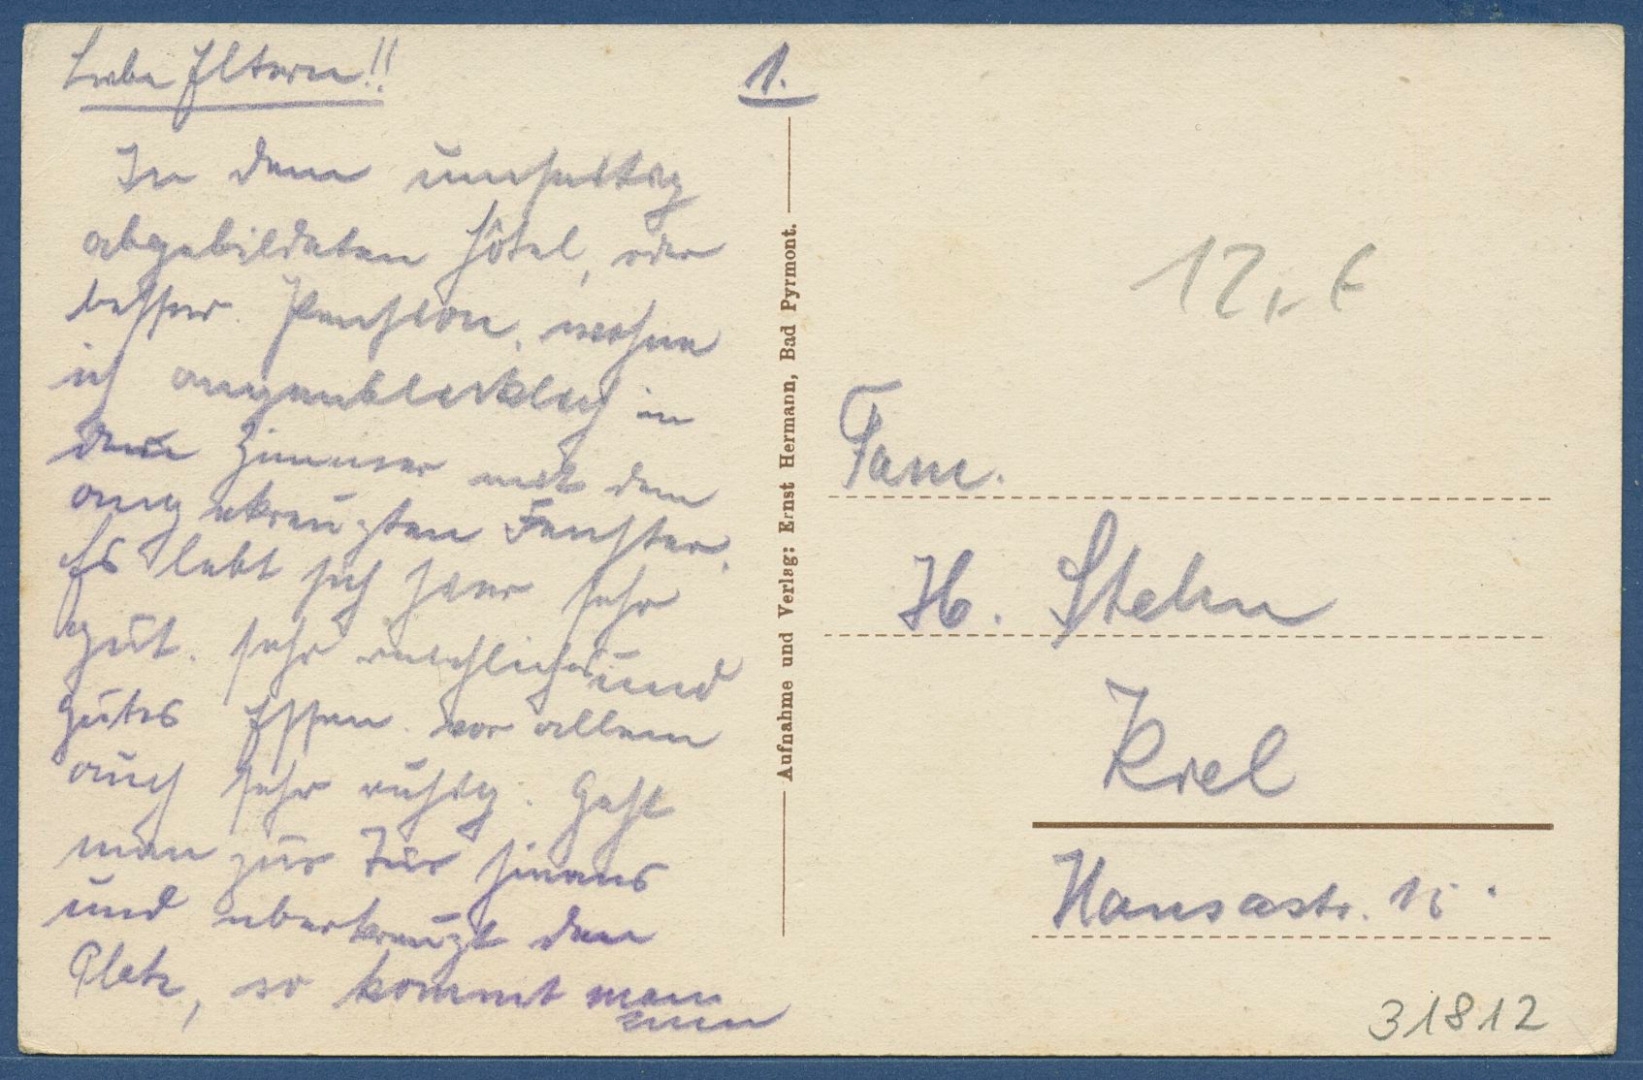 Liebe Eltern!!
1.
In dem umseitig
abgebildeten Hôtel, oder
besser Pension, wohne
ich augenblicklich in
dem Zimmer mit dem
angekreuzten Fenster.
Es lebt sich hier sehr
gut. sehr reichliches und
gutes Essen. vor allem
auch sehr ruhig. Geht
man zur Tür hinaus
und überkreuzt den
Platz, so kommt man
zum
Aufnahme und Verlag: Ernst Hermann, Bad Pyrmont.
12,- €
Fam.
H. Stehn
Kiel
Hansastr.
31812